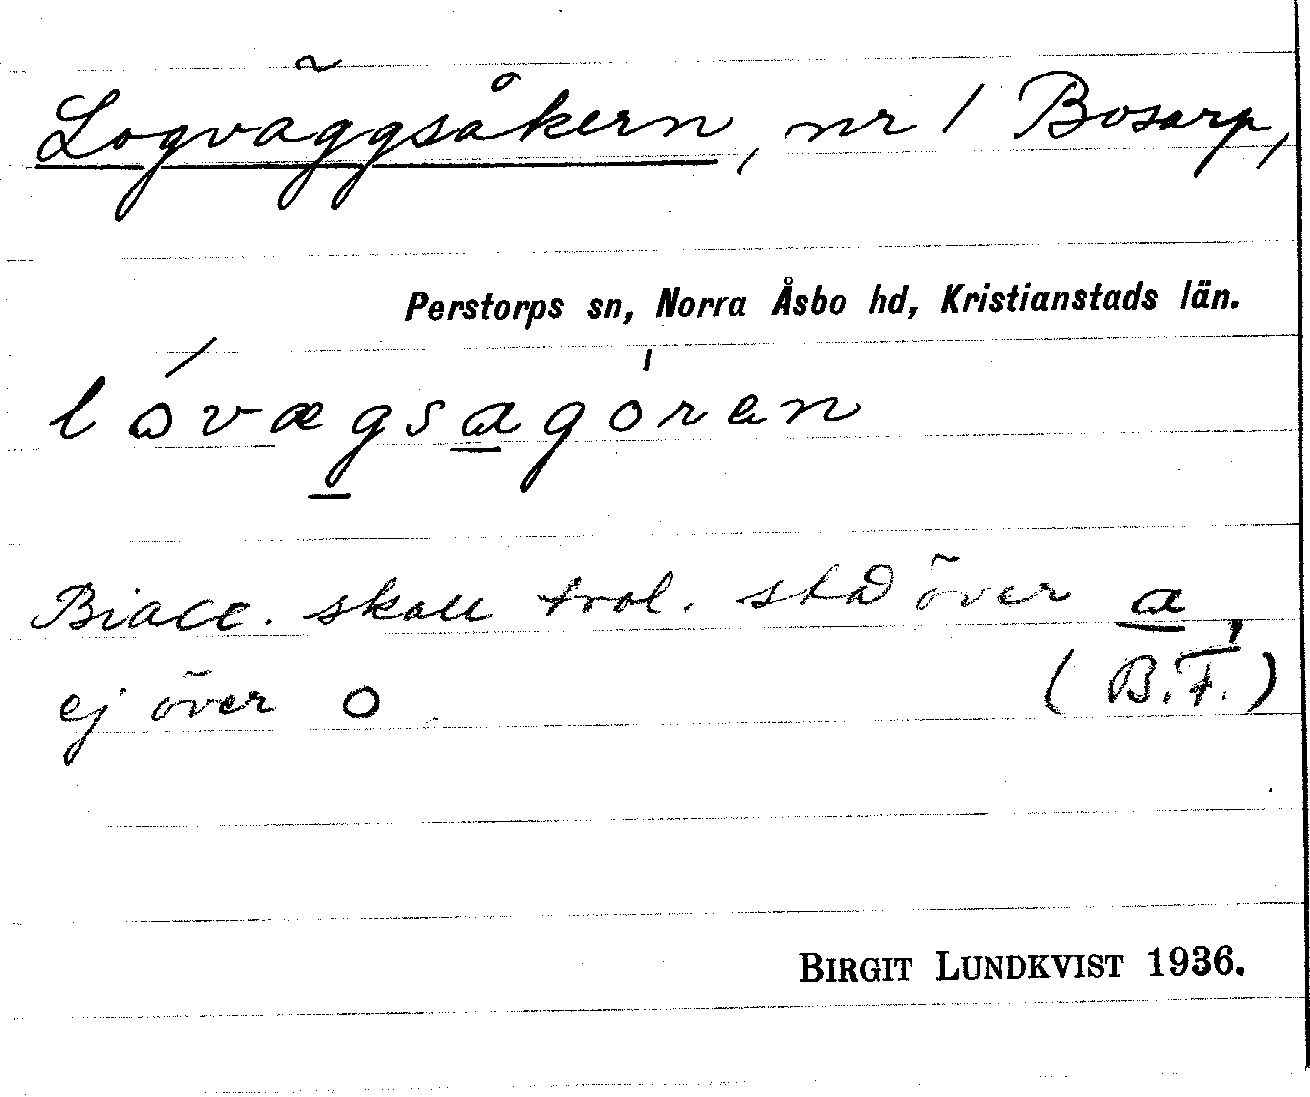 Logväggsåkern, nr 1 Bosarp,
Perstorps sn, Norra Åsbo hd, Kristianstads län.
lóvægsagóran
Biacc. skall trol. stå över a
ej över o (B.F.)
BIRGIT LUNDKVIST 1936.